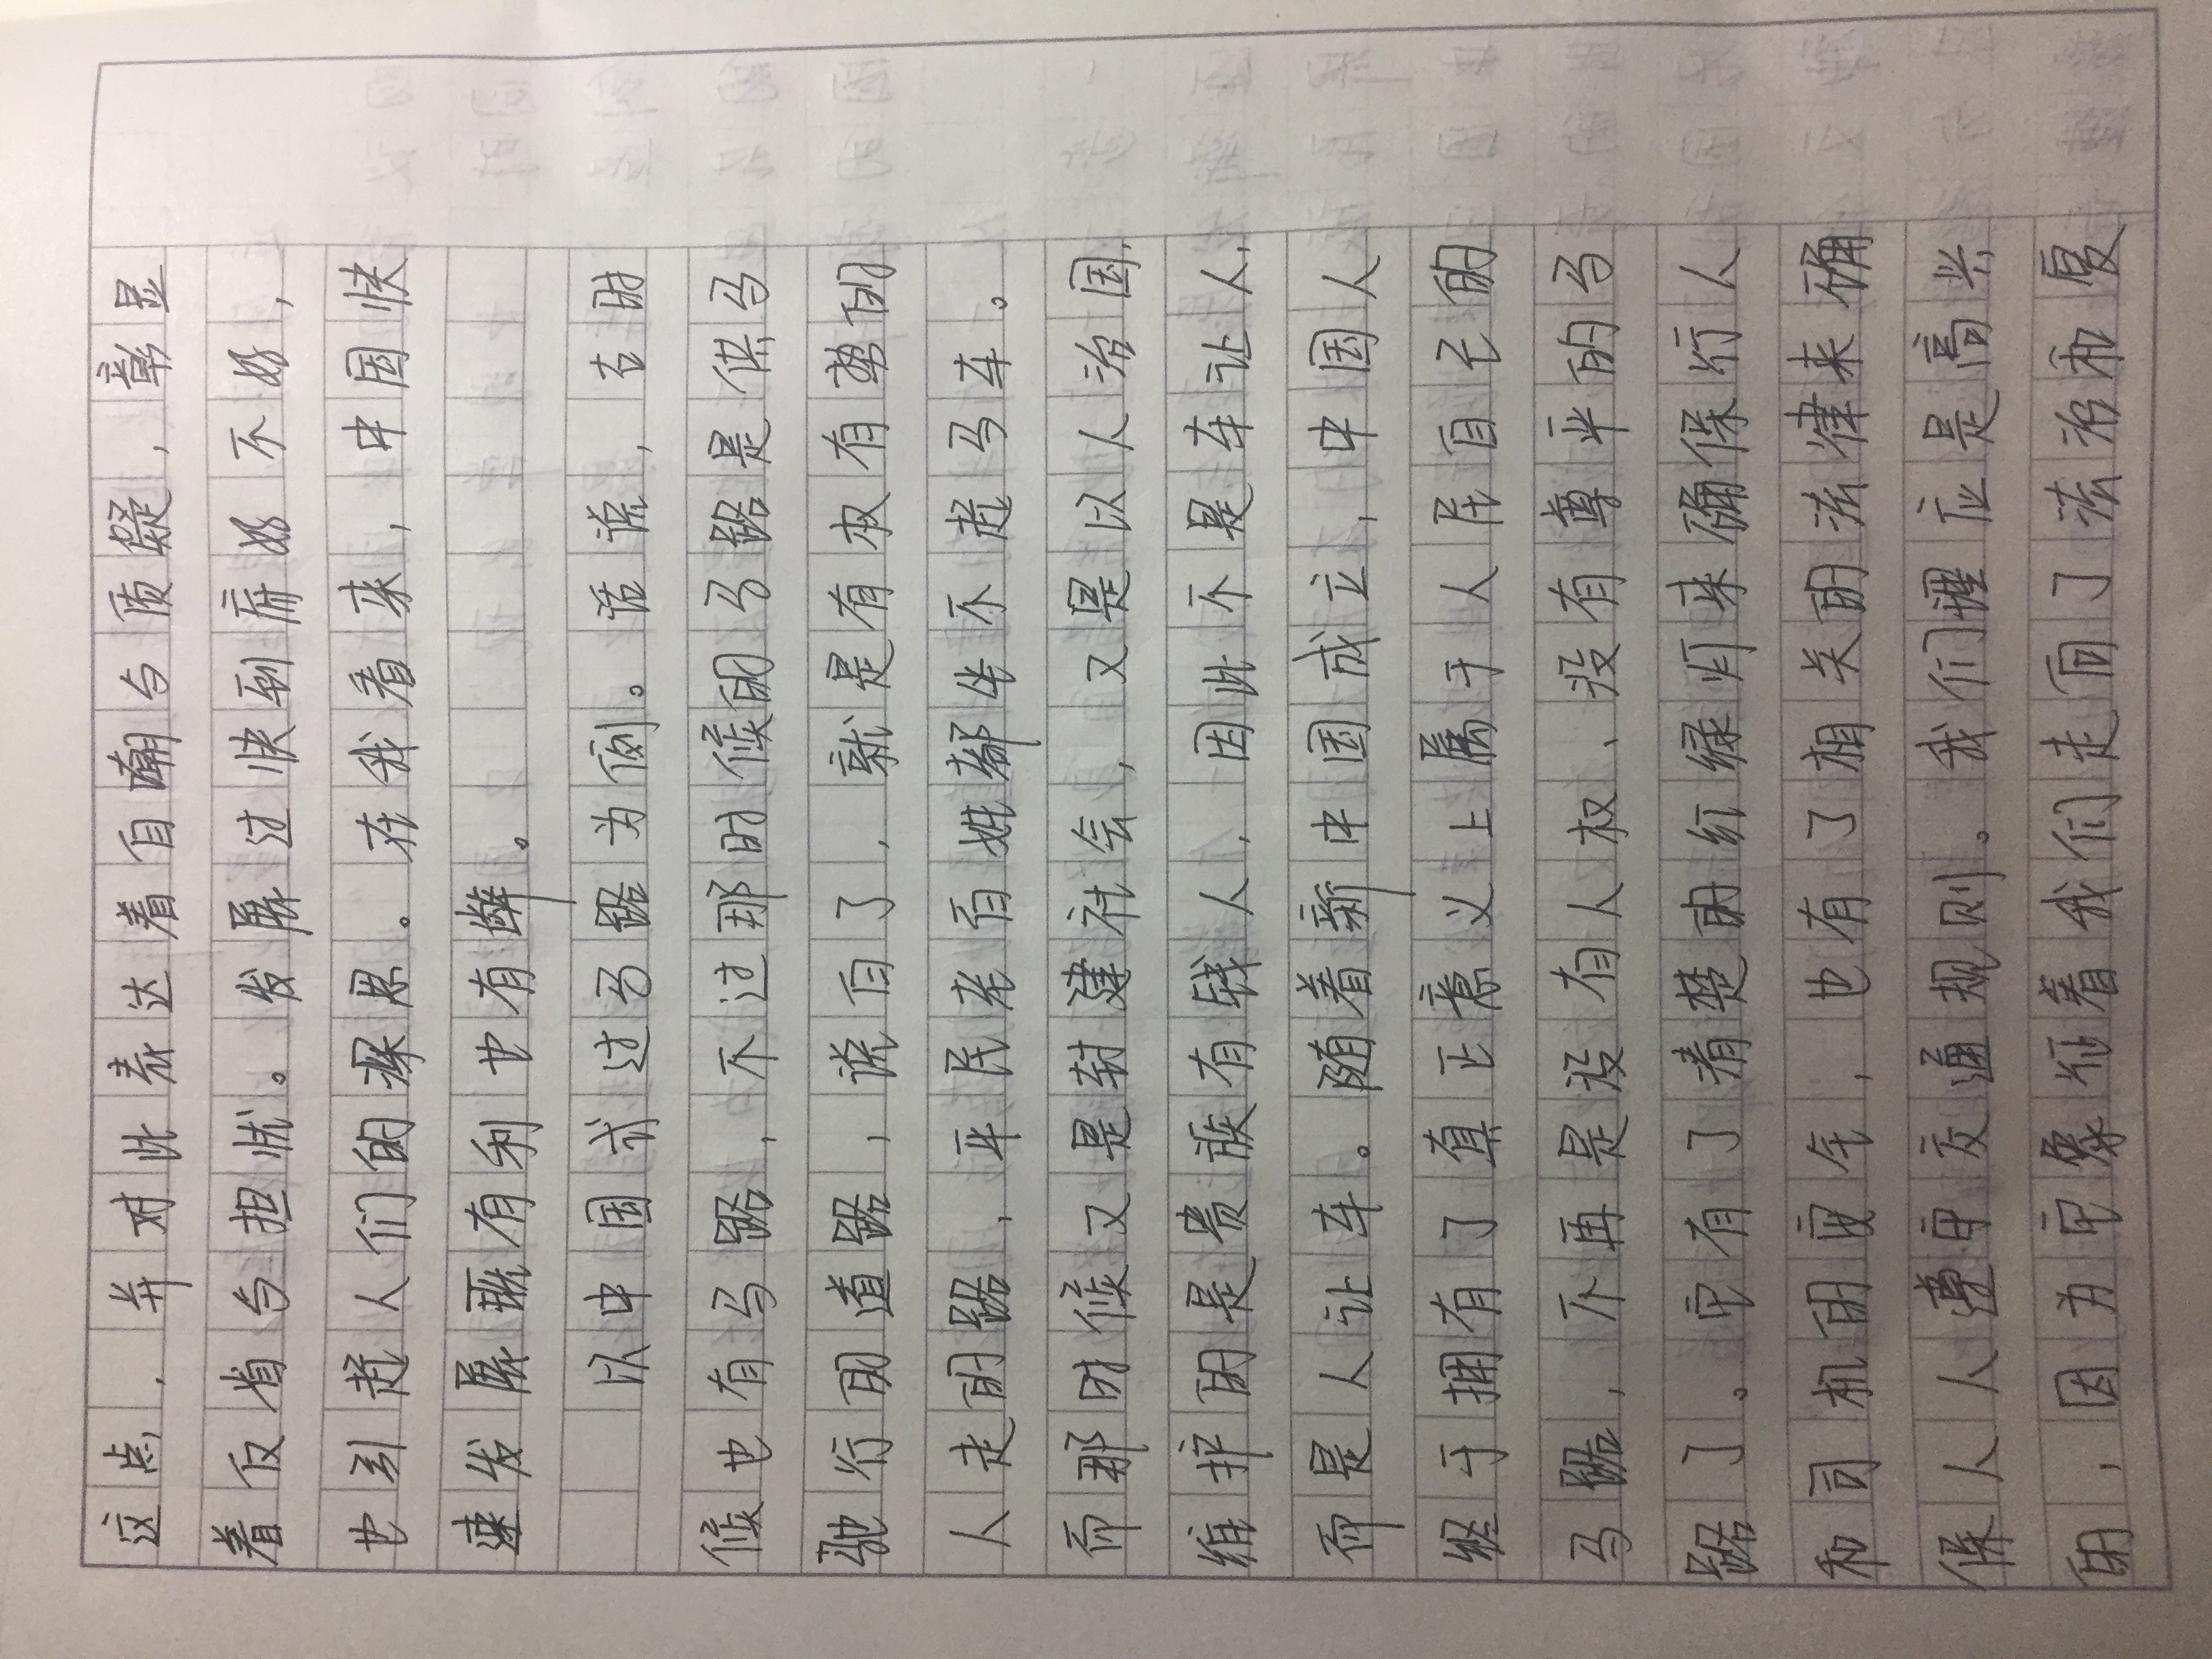 这点，并对此表达着自嘲与质疑，彰显
着反省与担忧。发展过快到底好不好，
也引起人们的深思。在我看来，中国快
速发展既有利也有弊。
以中国式过马路为例。话说，古时
候也有马路，不过那时候的马路是供马
驰行的道路，说白了，就是有权有势的
人走的路，平民老百姓都坐不起马车。
而那时候又是封建社会，又是以人治国，
维护的是贵族有钱人，因此不是车让人，
而是人让车。随着新中国成立，中国人
终于拥有了真正意义上属于人民自己的
马路，不再是没有人权、没有尊严的马
路了。它有了清楚的红绿灯来确保行人
和司机的安全，也有了相关的法律来确
保人人遵守交通规则。我们理应是高兴
的，因为它象征着我们走向了法治和复